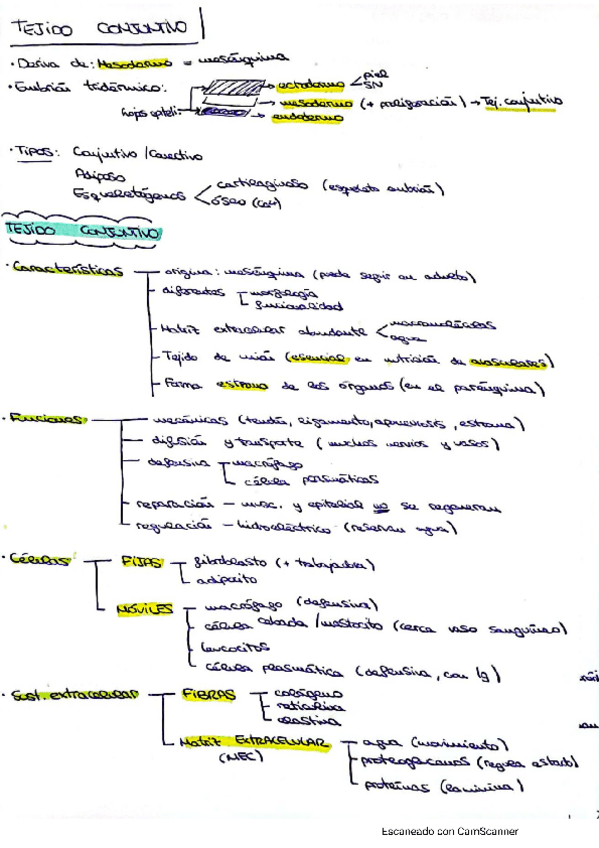 TEJIDO CONJUNTIVO
· Deriva de: Mesodermo = mesénquima
· Embrión tridérmico: → ectodermo < piel
SN
→ mesodermo (+ proligeración) → Tej. conjuntivo
hojas epiteli. → endodermo
· TIPOS: Conjuntivo / Conectivo
Adiposo
Esqueletógenos < cartilaginoso (esqueleto embrión)
óseo
TEJIDO CONJUNTIVO
· Características — origina: mesénquima (puede seguir en adulto)
— diferentes — morfología
funcionalidad
— Matriz extracelular abundante < macromoléculas
agua
— Tejido de unión (esencial en nutrición de avasculares)
— Forma estroma de los órganos (en el parénquima)
· Funciones — mecánicas (tendón, ligamento, aponeurosis, estroma)
— difusión y transporte (muchos nervios y vasos)
— defensiva — macrófago
célula plasmáticas
— reparación — musc. y epitelial no se regeneran
— regulación — hidroeléctrico (reservan agua)
· Células — FIJAS — fibroblasto (+ trabajadora)
adipocito
MÓVILES — macrófago (defensiva)
— célula cebada / mastocito (cerca vaso sanguíneo)
— leucocitos
— célula plasmática (defensiva, con Ig)
· Sust. extracelular — FIBRAS — colágeno
— reticulina
— elastina
— MATRIZ EXTRACELULAR — agua (movimiento)
(MEC) — proteoglicanos (regula estado)
— proteínas (laminina)
Escaneado con CamScanner